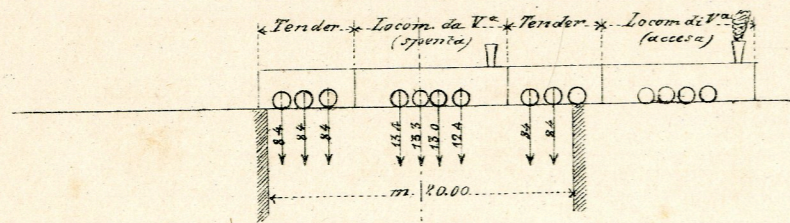 Tender Locom da Vª Tender Locom di Vª
(spenta) (accesa)
84 84 84 134 133 130 124 84 84
m. 20.00